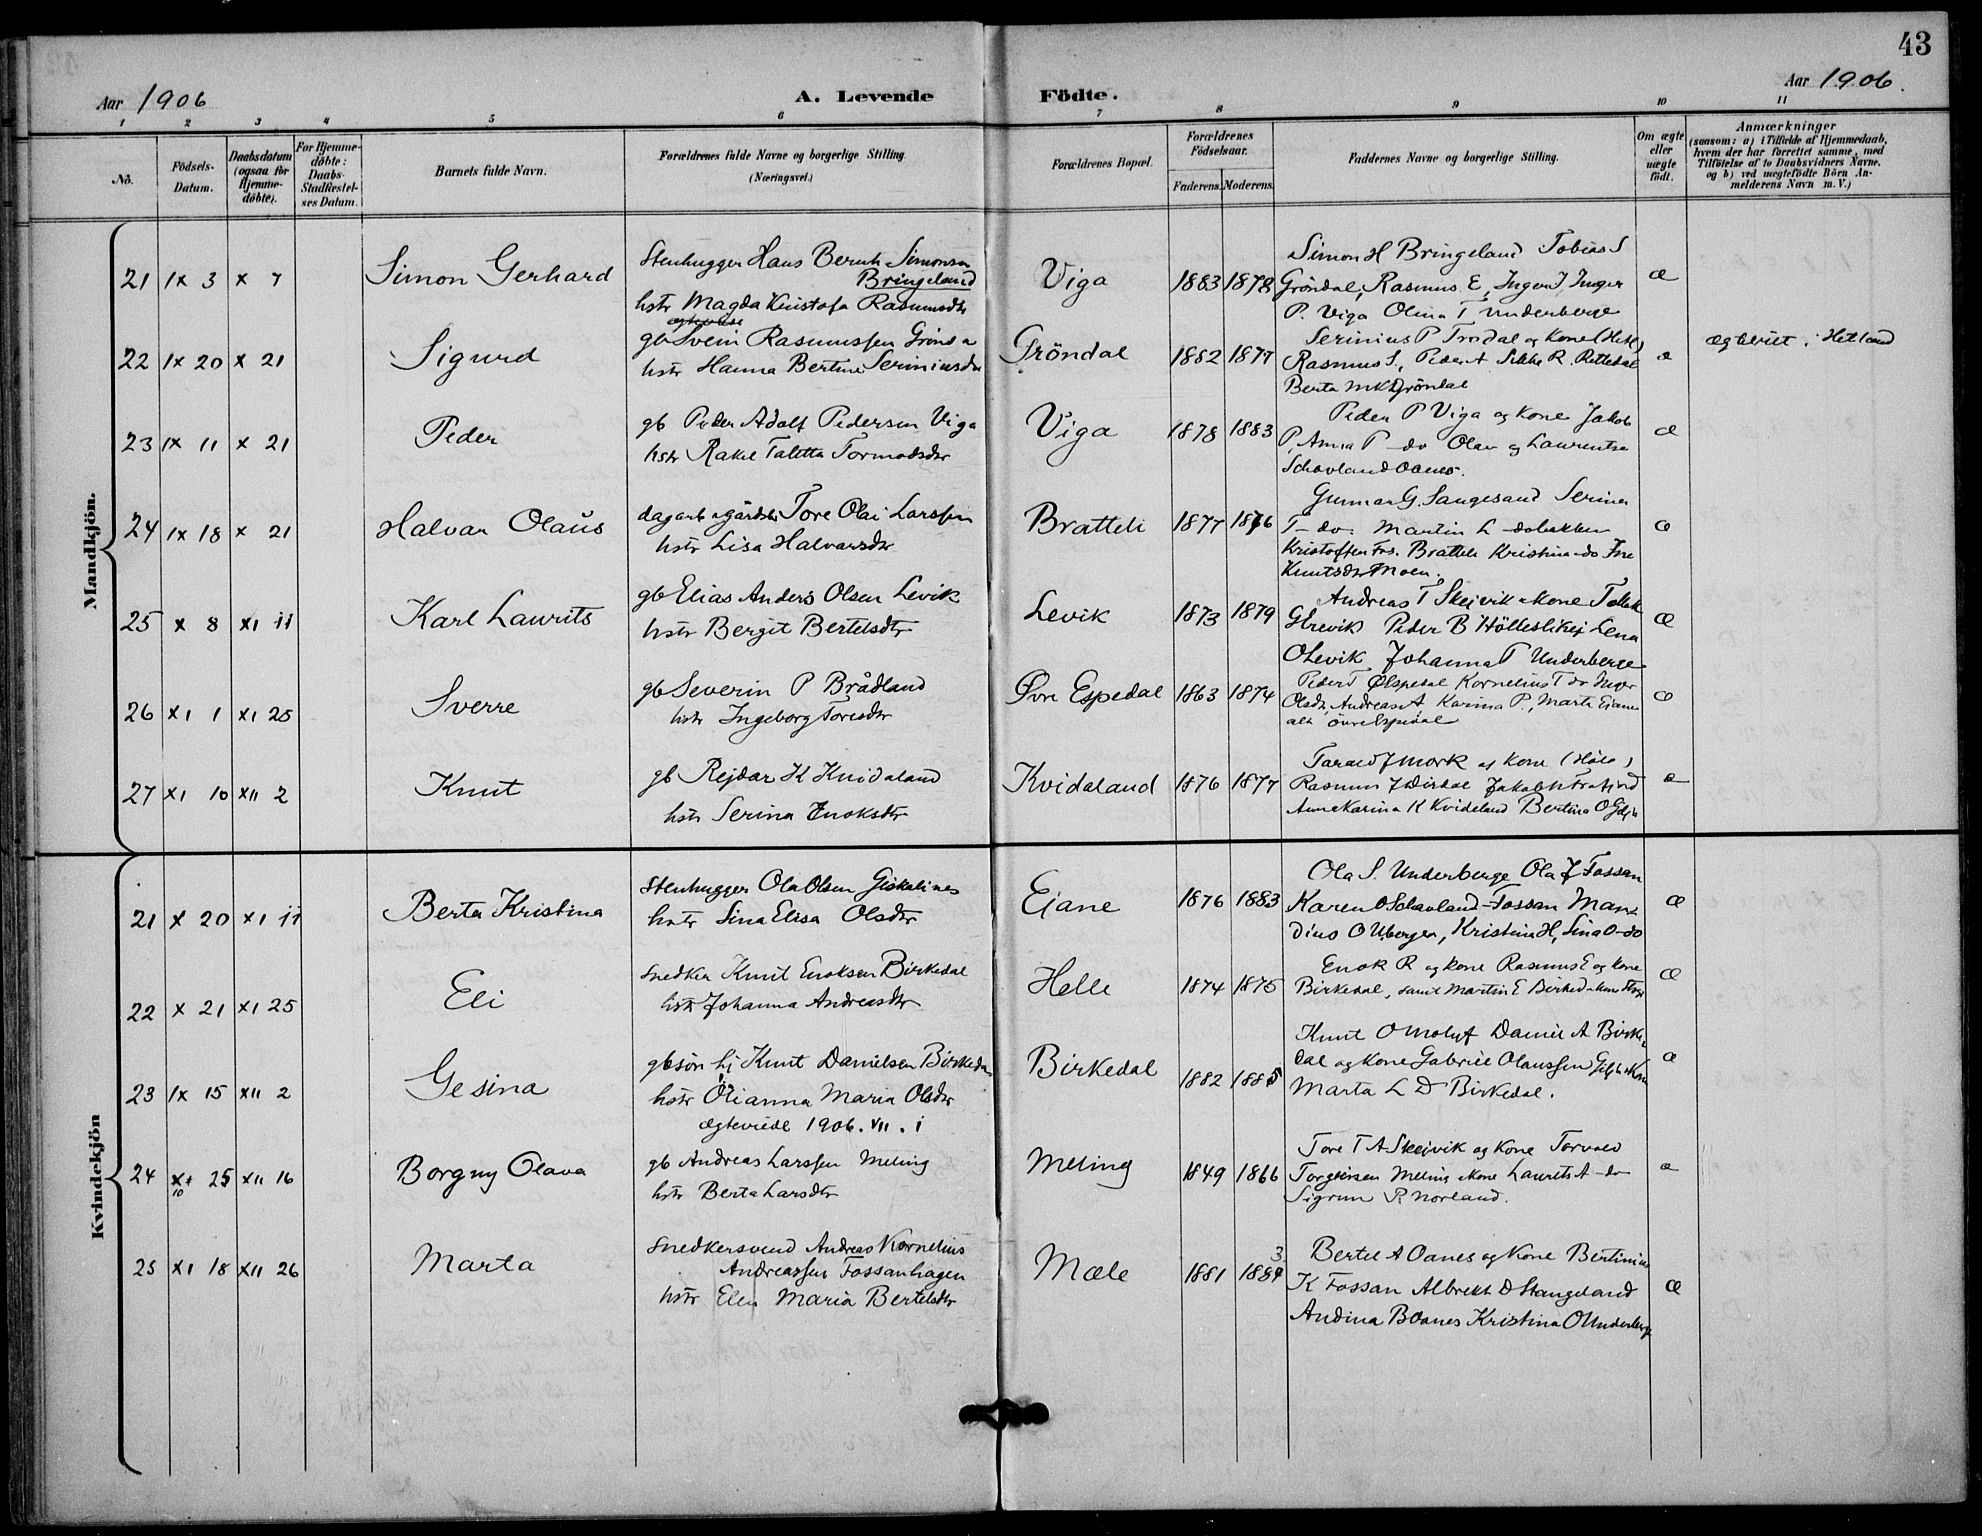 43
Aar 1906
A. Levende Födte.
Aar 1906.
1 2 3 4 5 6 7 8 9 10 11
No.
Födsels-Datum.
Daabsdatum (ogsaa for Hjemme-döbte).
For Hjemme-döbte: Daabs-Stadfæstel-ses Datum.
Barnets fulde Navn.
Forældrenes fulde Navne og borgerlige Stilling.
(Næringsvei.)
Forældrenes Bopæl.
Forældrenes Fødselsaar.
Faderens. Moderens.
Faddernes Navne og borgerlige Stilling.
Om ægte eller uægte födt.
Anmærkninger
(saasom: a) i Tilfælde af Hjemmedaab, hvem der har forrettet samme, med Tilföielse af to Daabsvidners Navne, og b) ved uægtefödte Börn An-melderens Navn m. V.)
Mandkjön.
21 IX 3 X 7 Simon Gerhard
Stenhugger Hans Bernh Simonsen
Bringeland
hstr Magda Kristofa Rasmusdtr
Viga 1883 1878
Simon H Bringeland Tobias S
Gröndal, Rasmus E, Inger J Inger
P. Viga Olina T Underberge
Æ
22 IX 20 X 21 Sigurd
gb Svein Rasmussen
hstr Hanna Bertine Seriniusdtr
Gröndal 1882 1877
Serinius P Trodal og Kone
Rasmus S., Peder A R. Rettedal
Berta Gröndal
æ
i Hetland
23 IX 11 X 21 Peder
gb Peder Adolf Pedersen Viga
hstr Rakel Taletta Tormodsdtr
Viga 1878 1883
Peder P Viga og Kone Jakob
P, Anna P do Olav og Laurentse
Schovland Oanes.
Æ
24 IX 18 X 21 Halvar Olaus
dagarb Tore Olai Larssen
hstr Lisa Halvarsdtr
Bratteli 1877 1876
Gunnar G. Saugesand Serina
T do. Martin L
Bratteli Kristina do
Knutsdtr Moen.
Æ
25 X 8 XI 11 Karl Laurits
gb Elias Anders Olsen Levik
hstr Bergit Bertelsdtr
Levik 1873 1879
Andreas T Skejvik Kone
Peder B Lena
O Levik Johanna T Underberge
Æ
26 XI 1 XI 25 Sverre
gb Severin P Brådland
hstr Ingeborg Toresdtr
Øvre Espedal 1863 1874
Peder T Kornelius T do Inger
Olsdtr, Andreas A Karina P., Marta
alle övre Espedal
Æ
27 XI 10 XII 2 Knut
gb Rejdar K Kvidaland
hstr Serina Enoksdtr
Kvidaland 1876 1877
Mörk og Kone (Höle)
Rasmus J Dirdal Jakob Frafjord
Anna Karina K Kvideland Bertina O
Æ
Kvindekjön
21 X 20 XI 11 Berta Kristina
Stenhugger Ola Olsen Giskelines
hstr Sina Elisa Olsdtr
Ejane 1876 1883
Ola S. Underberge Ola J Fossan
Karen O Schavland Fossan Man-
dius O Uberger, Kristina H, Sina O do
Æ
22 X 21 XI 25 Eli
Snedker Knut Enoksen Birkedal
hstr Johanna Andreasdtr
Helle 1874 1875
Enok R og Kone Rasmus E og Kone
Birkedal, samt Martin E Birked
Æ
23 IX 15 XII 2 Gesina
gbsön hj Knut Danielsen Birkedal
hstr Olianna Maria Olsdtr
ægteviede 1906. VII. 1
Birkedal 1882 1885
Knut O Daniel A Birke
dal og Kone Gabriel Olaussen
Marta L D Birkedal.
Æ
24 25 XII 16 Borgny Olava
10
gb Andreas Larssen Meling
hstr Berta Larsdtr
Meling 1849 1866
Tore T A Skejvik og Kone Torvald
Torgersen Meling Kone Laurits A do
Sigrun P. Norland.
Æ
25 XI 18 XII 26 Marta
Snedkersvend Andreas Kornelius
Andreassen Fossanhagen
hstr Elen Maria Bertelsdtr
Mæle 1881 1884 3
Bertel A Oanes og Kone Bertinius
K Fossan Albrekt D Stangeland
Andina B Oanes Kristina O Underberge
Æ